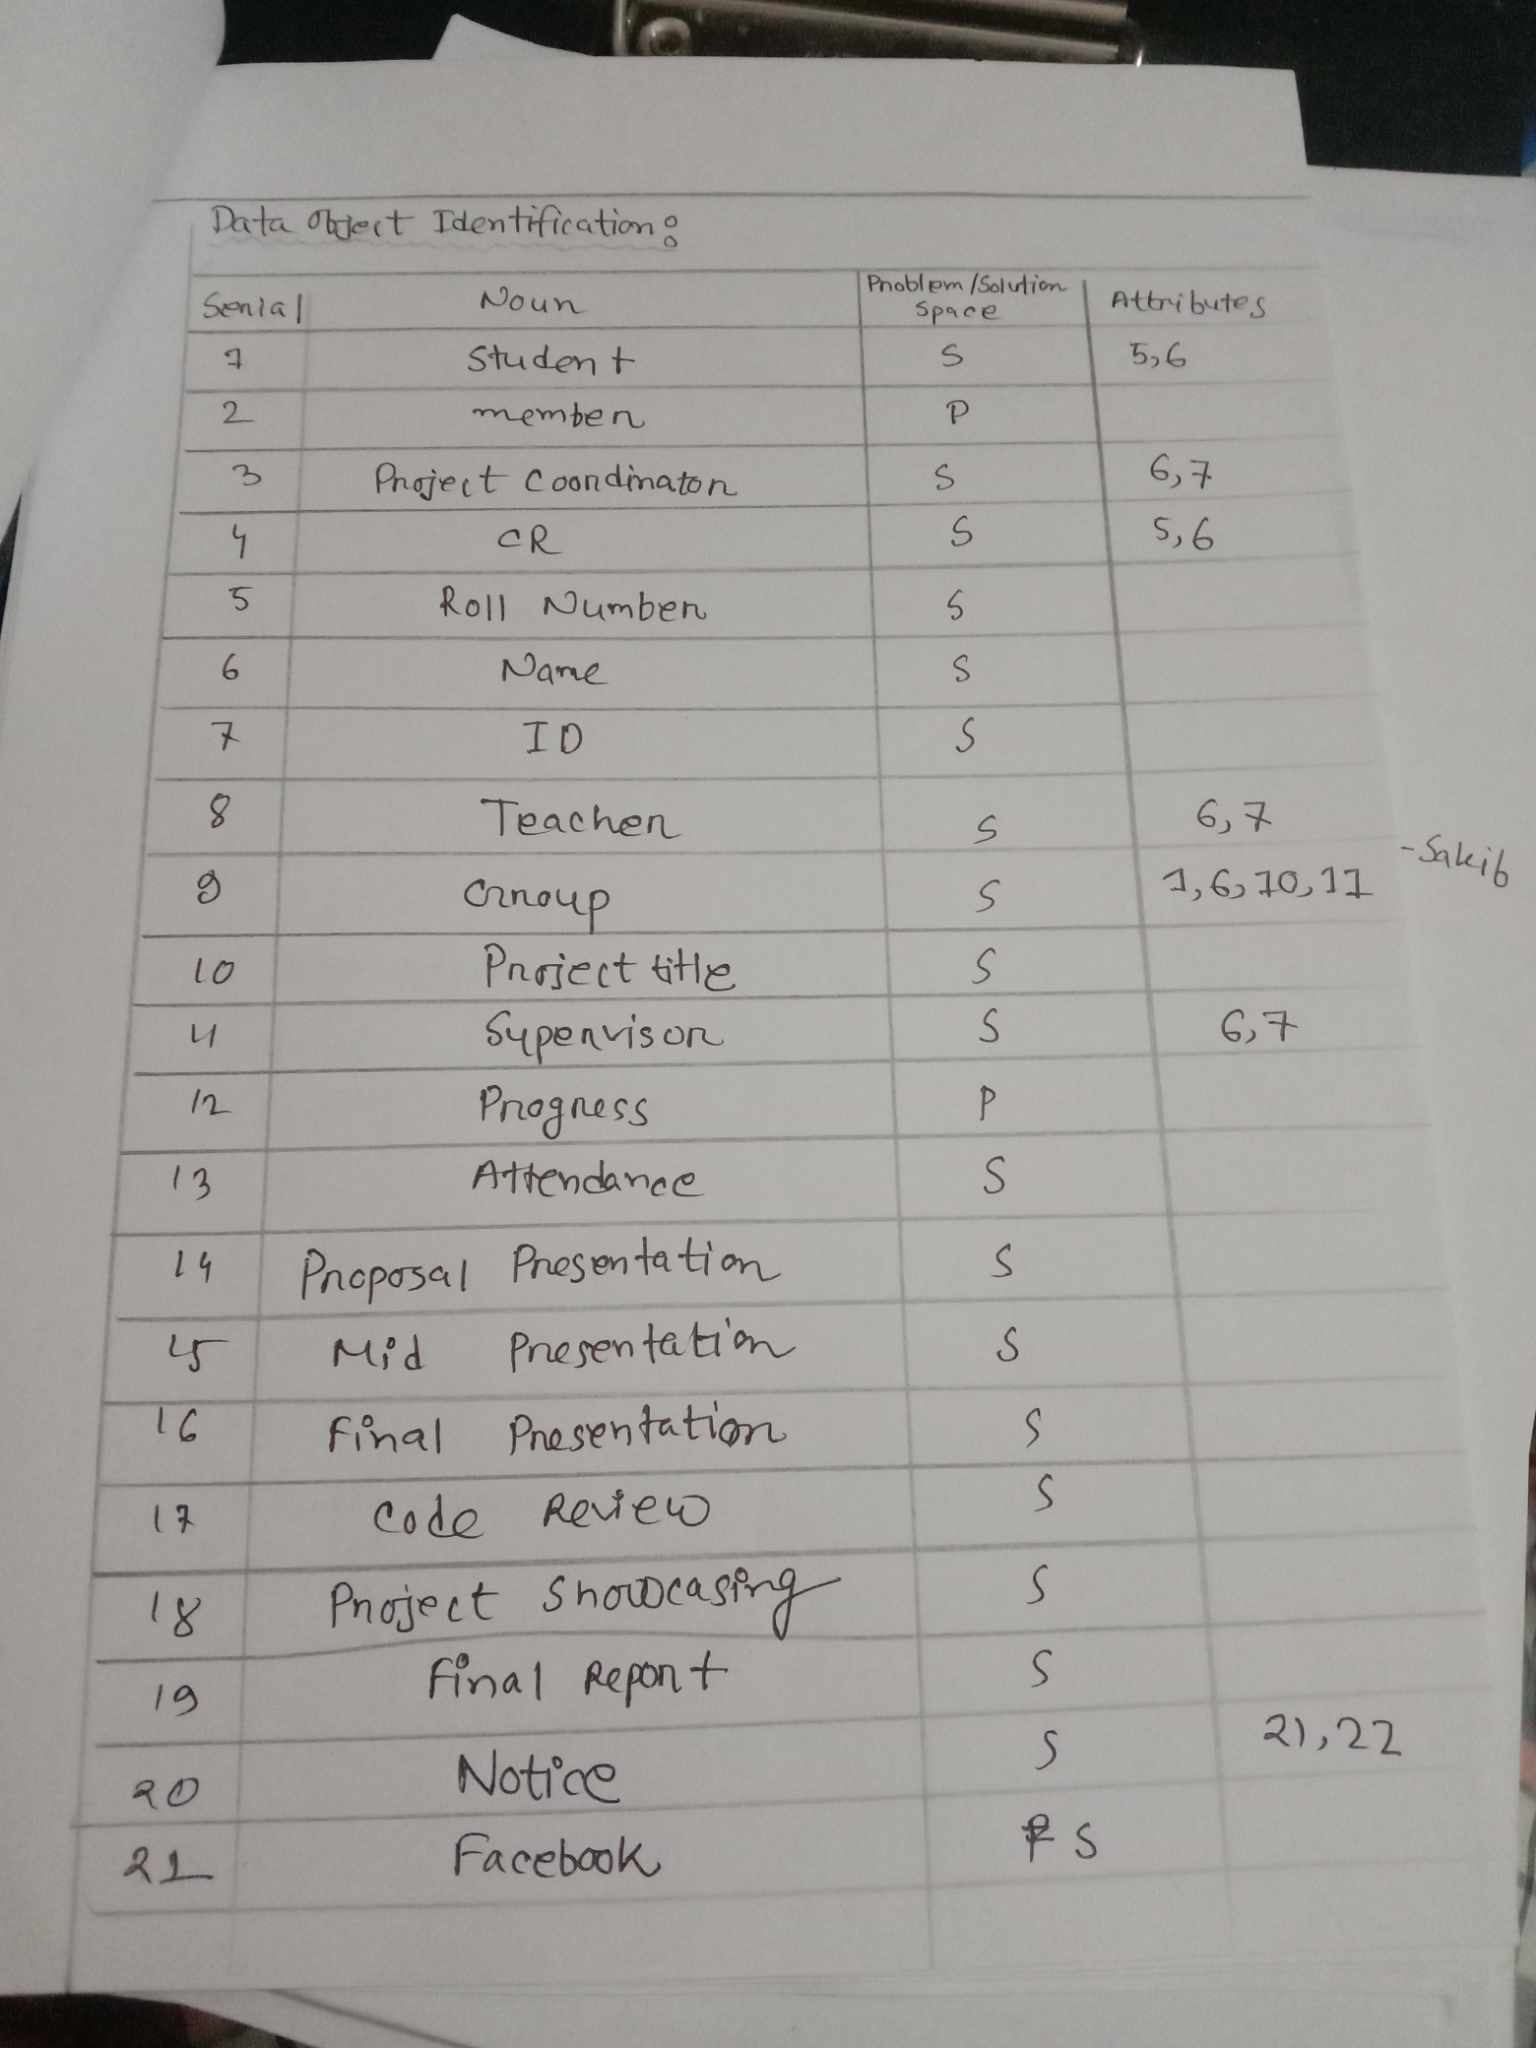 Data Object Identification:
Serial Noun Problem/Solution Space Attributes
1 Student S 5,6
2 member P
3 Project Coordinator S 6,7
4 CR S 5,6
5 Roll Number S
6 Name S
7 ID S
8 Teacher S 6,7
-Sakib
9 Group S 1,6,10,11
10 Project title S
11 Supervisor S 6,7
12 Progress P
13 Attendance S
14 Proposal Presentation S
15 Mid Presentation S
16 Final Presentation S
17 Code Review S
18 Project Showcasing S
19 Final Report S
20 Notice S 21,22
21 Facebook S